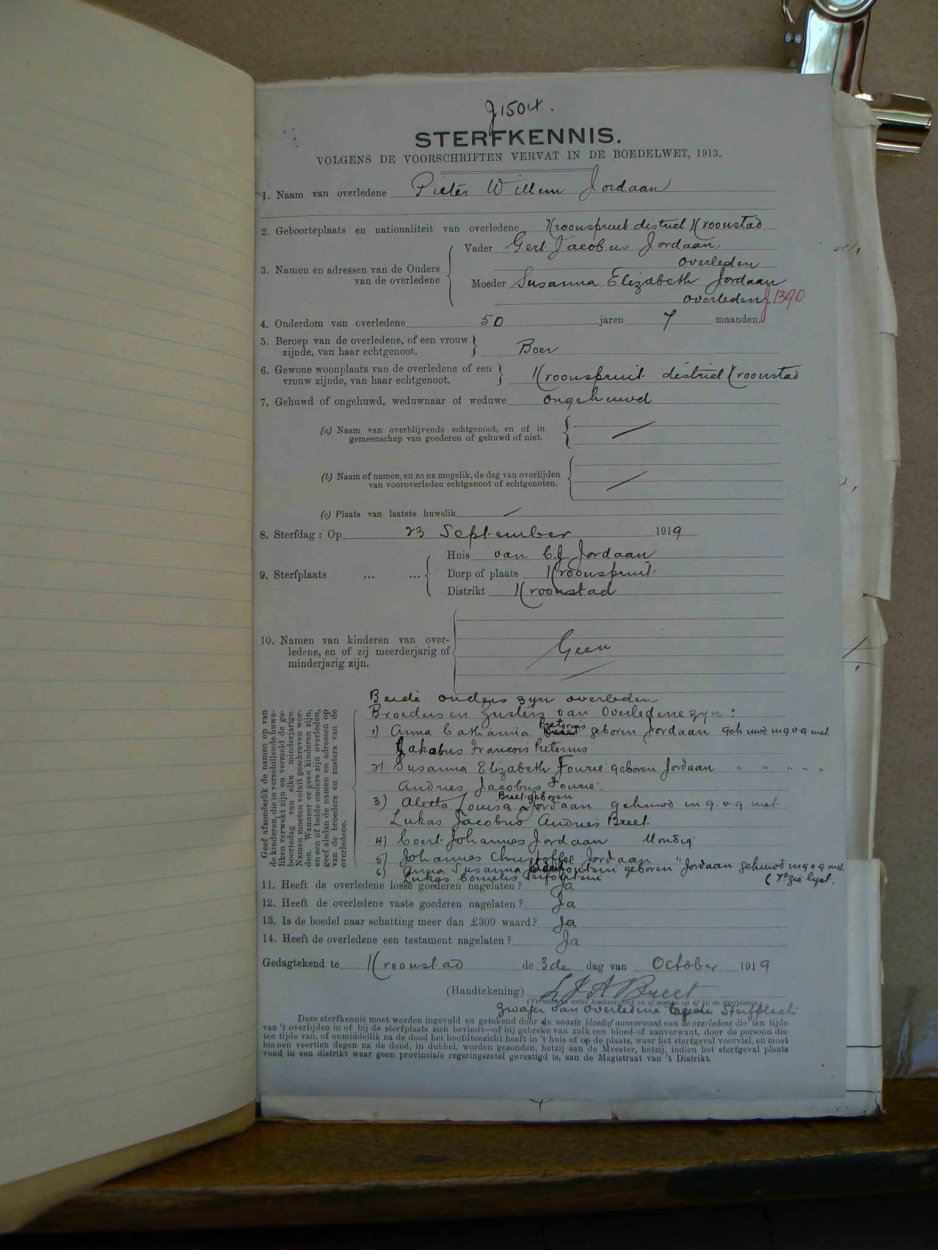 J1504.
STERFKENNIS.
VOLGENS DE VOORSCHRIFTEN VERVAT IN DE BOEDELWET, 1913.
1. Naam van overledene Pieter Willem Jordaan
2. Geboorteplaats en nationaliteit van overledene Kroonspruit district Kroonstad
Vader Gert Jacobus Jordaan,
overleden
3. Namen en adressen van de Ouders van de overledene
Moeder Susanna Elizabeth Jordaan
overleden J1390
4. Ouderdom van overledene 50 jaren 7 maanden.
5. Beroep van de overledene, of een vrouw
zijnde, van haar echtgenoot. Boer
6. Gewone woonplaats van de overledene of een
vrouw zijnde, van haar echtgenoot. Kroonspruit district Kroonstad
7. Gehuwd of ongehuwd, weduwnaar of weduwe ongehuwd
(a) Naam van overblijvende echtgenoot, en of in
gemeenschap van goederen of gehuwd of niet.
(b) Naam of namen, en zo na mogelik, de dag van overlijden
van vooroverleden echtgenoot of echtgenoten.
(c) Plaats van laatste huwelik
8. Sterfdag: Op 23 September 1919
Huis van C.J. Jordaan
9. Sterfplaats ... ... Dorp of plaats Kroonspruit
Distrikt Kroonstad
10. Namen van kinderen van over-
ledene, en of zij meerderjarig of
minderjarig zijn.
Geen
Beide ouders zyn overleden
Broeders en zusters van Overledene zyn:
1) Anna Catharina Pretorius geboren Jordaan gehuwd in g o g met
Jakobus Francois Pretorius
2) Susanna Elizabeth Fourie geboren Jordaan " " " " "
Andries Jacobus Fourie
3) Aletta Louisa Breet geboren Jordaan gehuwd in g.o.g met
Lukas Jacobus Andries Breet
4) Coert Johannes Jordaan Mondig
5) Johannes Christoffel Jordaan "
6) Anna Susanna geboren Jordaan gehuwd in g o g met
Lukas Cornelis (7° zie lyst.
Geef afzonderlik de namen op van
de kinderen, die in verschillende huwe-
liken verwekt zijn en vermeld de ge-
boortedag van elke minderjarige.
Namen moeten voluit geschreven wor-
den. Wanneer er geen kinderen zijn,
en een of beide ouders zijn overleden,
geef alsdan de namen en adressen op
van de broeders en zusters van de
overledene.
11. Heeft de overledene losse goederen nagelaten? Ja
12. Heeft de overledene vaste goederen nagelaten? Ja
13. Is de boedel naar schatting meer dan £300 waard? Ja
14. Heeft de overledene een testament nagelaten? Ja
Gedagtekend te Kroonstad de 3de dag van October 1919
(Handtekening) L J A Breet
Zwager van overledene Sterfplaats
Deze sterfkennis moet worden ingevuld en getekend door de naaste bloed of aanverwant van de overledene die ten tijde
van 't overlijden in of bij de sterfplaats zich bevindt—of bij gebreke van zulk een bloed-of aanverwant, door de persoon die
ten tijde van, of onmiddelik na de dood het hoofdtoezicht heeft in 't huis of op de plaats, waar het sterfgeval voorviel, en moet
binnen veertien dagen na de dood, in dubbel, worden gezonden, hetzij aan de Meester, hetzij, indien het sterfgeval plaats
vond in een distrikt waar geen provinciale regeringszetel gevestigd is, aan de Magistraat van 't Distrikt.